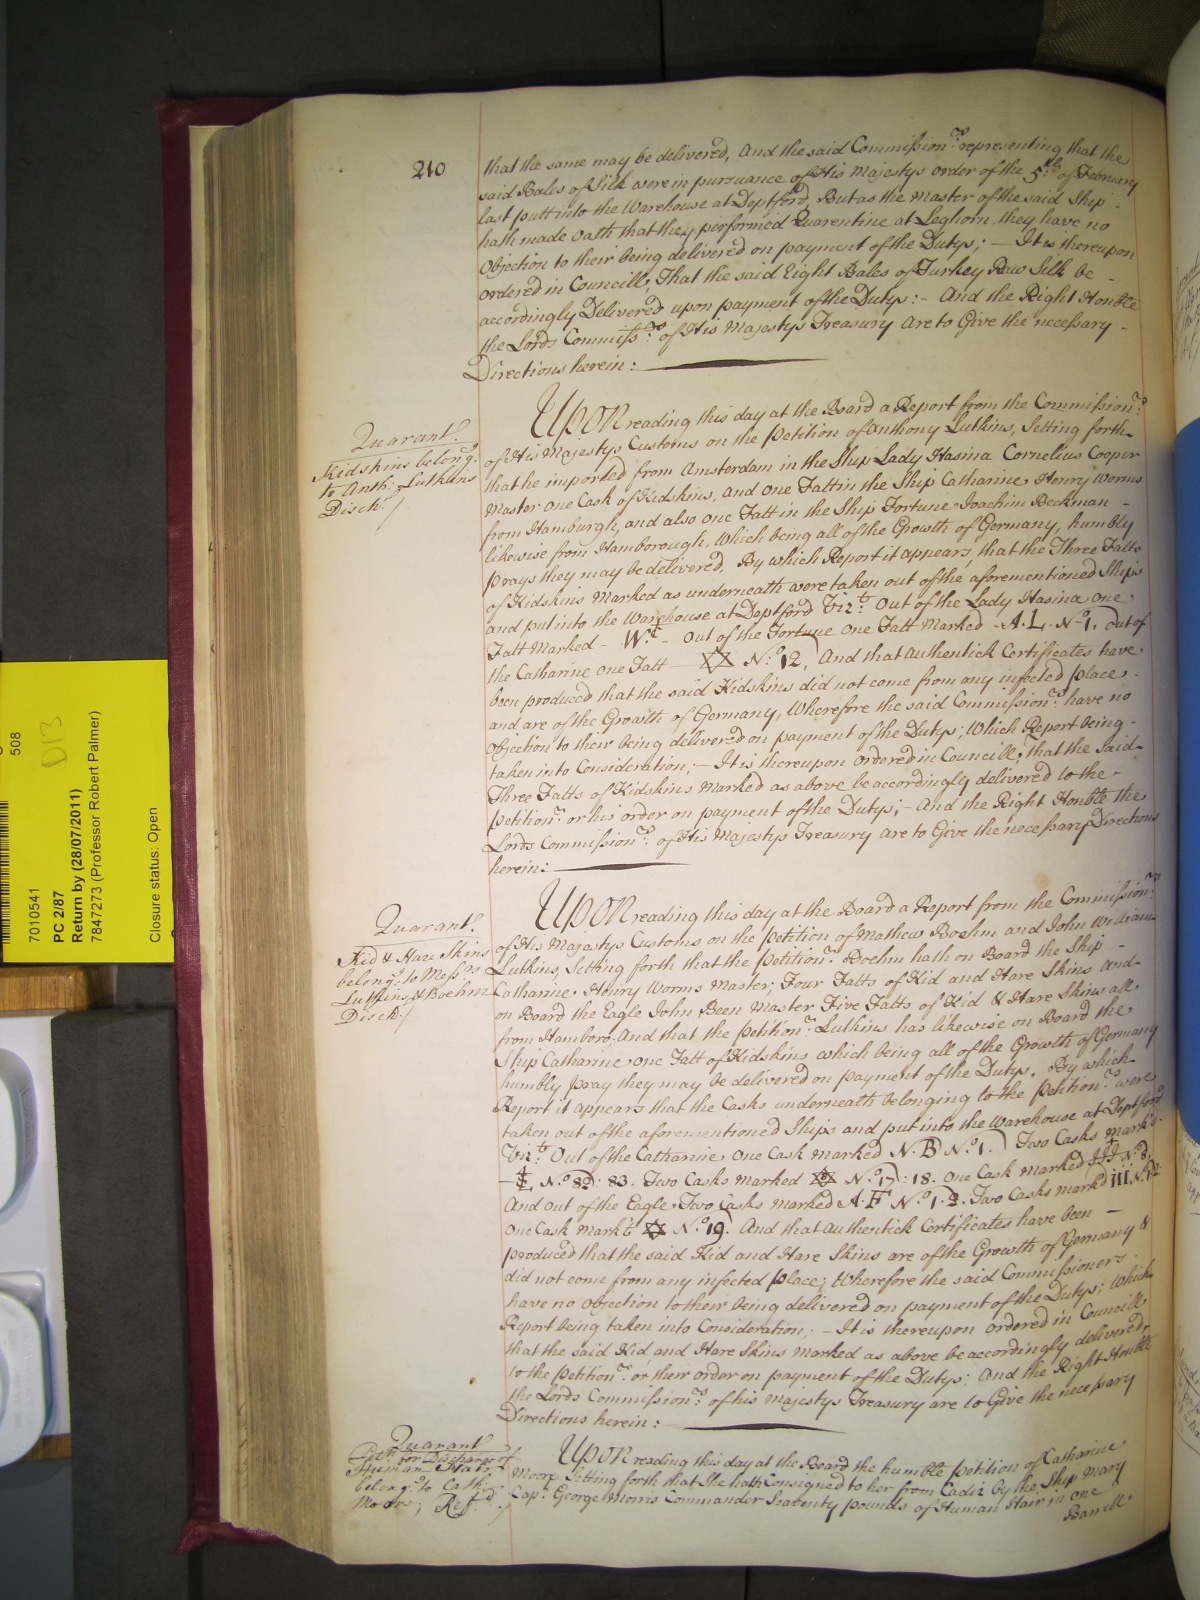 210
that the same may be delivered, And the said Commission.rs representing that the
said Bales of Silk were in pursuance of His Majestys order of the 5.th of February
last putt into the Warehouse at Deptford, But as the Master of the said Ship -
hath made Oath that they performed Quarentine at Leghorn, they have no
Objection to their being delivered on payment of the Dutys; - It is thereupon
ordered in Councill, That the said Eight Bales of Turkey Raw Silk be -
accordingly Delivered upon payment of the Dutys: - And the Right Honble
the Lords Commiss.rs of His Majestys Treasury are to Give the necessary -
Directions herein:
Quarant.
Kidskins belong.g
to Anth: Lutkins
Disch./
Upon reading this day at the Board a Report from the Commission.rs
of His Majestys Customs on the Petition of Anthony Lutkins, Setting forth
that he imported from Amsterdam in the Ship Lady Hasina Cornelius Cooper
Master One Cask of Kidskins, and One Fatt in the Ship Catharine Henry Worms
from Hamburgh, and also one Fatt in the Ship Fortune Joachim Beckman -
likewise from Hamborough, Which being all of the Growth of Germany, humbly
prays they may be delivered, By which Report it appears, that the Three Fatts
of Kidskins Marked as underneath were taken out of the aforementioned Ships
and put into the Warehouse at Deptford Viz.t Out of the Lady Hasina One
Fatt Marked - W - Out of the Fortune One Fatt Marked - A.L. N.o 1. Out of
the Catharine One Fatt ✡ N.o 12, And that Authentick Certificates have
been produced that the said Kidskins did not come from any infected place,
and are of the Growth of Germany, Wherefore the said Commission.rs have no
Objection to their being delivered on payment of the Dutys; Which Report being -
taken into Consideration, - It is thereupon Ordered in Councill, that the said
Three Fatts of Kidskins Marked as above be accordingly delivered to the
Petition.r or his order on payment of the Dutys; - And the Right Honble the
Lords Commission.rs of His Majestys Treasury are to Give the necessary Directions
herein:
Quarant.
Kid & Hare Skins
belong.g to Mess.rs
Lutkins & Boehm
Disch./
Upon reading this day at the Board a Report from the Commission.rs
of His Majestys Customs on the Petition of Mathew Boehm and John William
Lutkins, Setting forth that the Petition.r Boehm hath on Board the Ship -
Catharine Henry Worms Master, Four Fatts of Kid and Hare Skins and
on Board the Eagle John Been Master Five Fatts of Kid & Hare Skins all
from Hamboro. And that the Petition.r Lutkins has likewise on Board the
Ship Catharine one Fatt of Kidskins which being all of the Growth of Germany
humbly pray they may be delivered on payment of the Dutys. By which
Report it appears that the Casks underneath belonging to the Petition.rs were
taken out of the aforementioned Ships and put into the Warehouse at Deptford
Viz.t Out of the Catharine One Cask marked N.B N.o 1. Two Casks mark'd
N.o 82: 83. Two Casks marked ✡ N.o 17: 18. One Cask marked N.o
And Out of the Eagle Two Casks marked A.F N.o 1.2. Two Casks mark'd III. N.o 1.2
One Cask mark'd ✡ N.o 19. And that Authentick Certificates have been -
produced that the said Kid and Hare Skins are of the Growth of Germany &
did not come from any infected place; Wherefore the said Commissioners
have no Objection to their being delivered on payment of the Dutys; Which
Report being taken into Consideration; - It is thereupon ordered in Councill
that the said Kid and Hare Skins marked as above be accordingly delivered
to the Petition.rs or their order on payment of the Dutys; And the Right Honble
the Lords Commission.rs of his Majestys Treasury are to Give the necessary
Directions herein:
Quarant
Pet.n for Discharge of
Human Hair
belong.g to Cath:
Moore; Ref.d /
Upon reading this day at the Board the humble Petition of Catharine
Moore Setting forth that She hath Consigned to her from Cadiz by the Ship Mary
Cap.t George Morris Commander Seaventy pounds of Human Hair in one
Barrell
508
D13
7010541
PC 2/87
Return by (28/07/2011)
7847273 (Professor Robert Palmer)
Closure status: Open